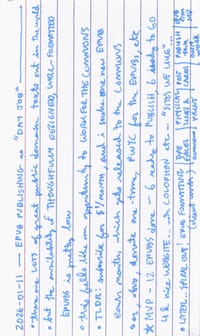 2026-01-11 — EPUB PUBLISHING as "DAY JOB"
• there are LOTS of great public domain texts out in the world
• but the availability of THOUGHTFULLY DESIGNED, WELL-FORMATTED
EPUBS is pretty low
• this feels like an opportunity to WORK FOR THE COMMONS
• TLDR: subscribe for $/MONTH and I make one new EPUB
each month, which gets released to the COMMONS
• or, also, donate one-time, PWYC for the EPUBS, etc
* MVP - 12 EPUBS done - 6 ready to PUBLISH, 6 ready to GO
4 a nice WEBSITE w/ COLOPHON etc - "SITES WE LIKE"
• NOTES: SPIRAL OUT! EPUB FORMATTING
(client work)
TYPE
PHYSICAL
POST
CARDS